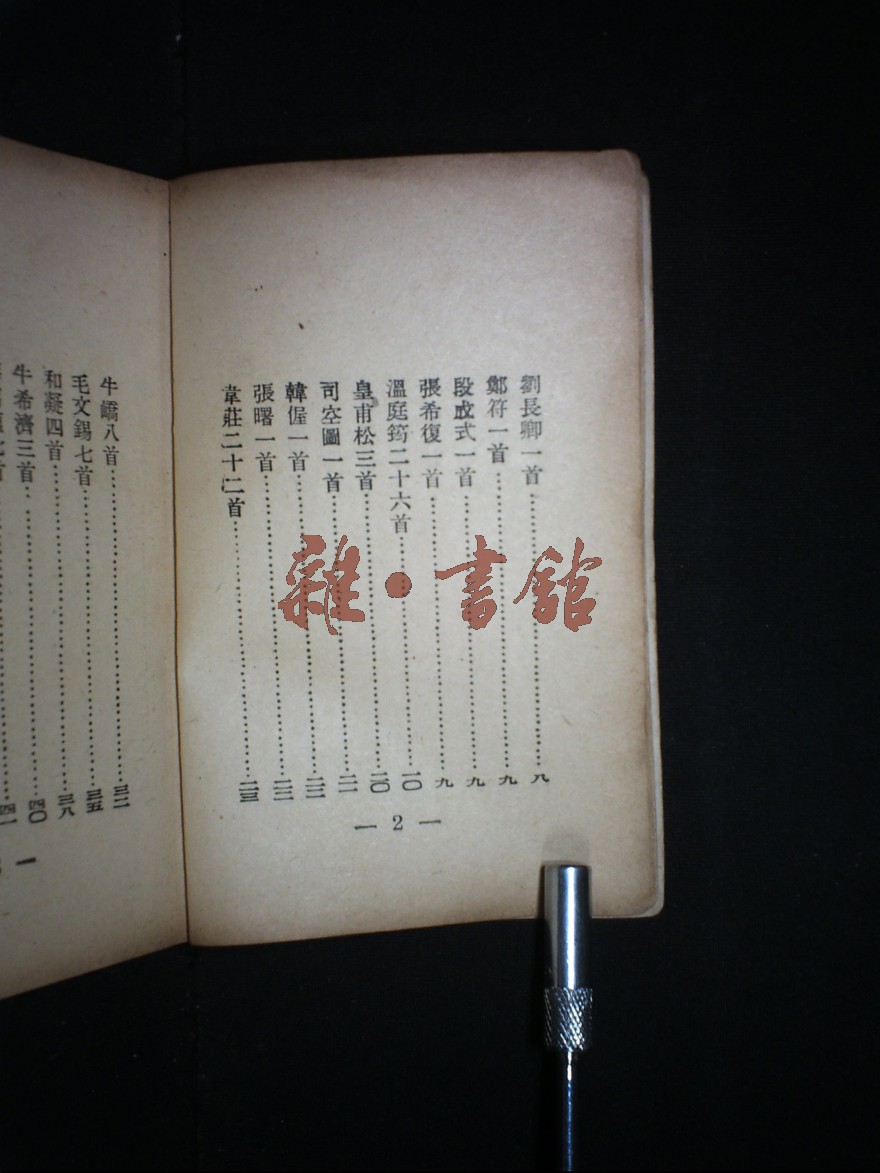 劉長卿一首……八
鄭符一首……九
段成式一首……九
張希復一首……九
溫庭筠二十六首……一〇
皇甫松三首……二〇
司空圖一首……二一
韓偓一首……二二
張曙一首……二二
韋莊二十二首……二三
— 2 —
牛嶠八首……三二
毛文錫七首……三五
和凝四首……三八
牛希濟三首……四〇
首……四一
雜·書館